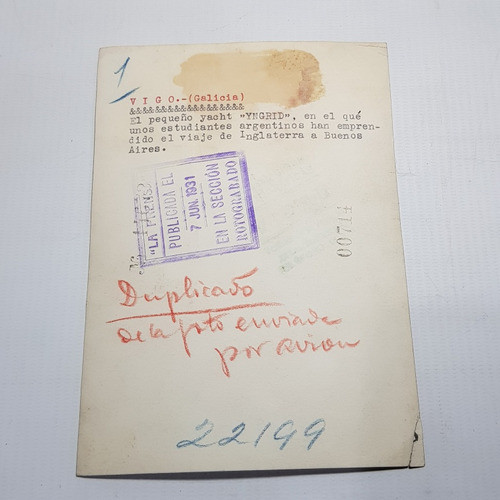 1
V I G O.-(Galicia)
&&&&&&&&&&&&&&&&&&
El pequeño yacht "YNGRID", en el qué
unos estudiantes argentinos han empren-
dido el viaje de Inglaterra a Buenos
Aires.
"LA PRENSA"
PUBLICADA EL
7 JUN. 1931
EN LA SECCIÓN
ROTOGRABADO
00714
Duplicado
de la foto enviada
por avion
22199